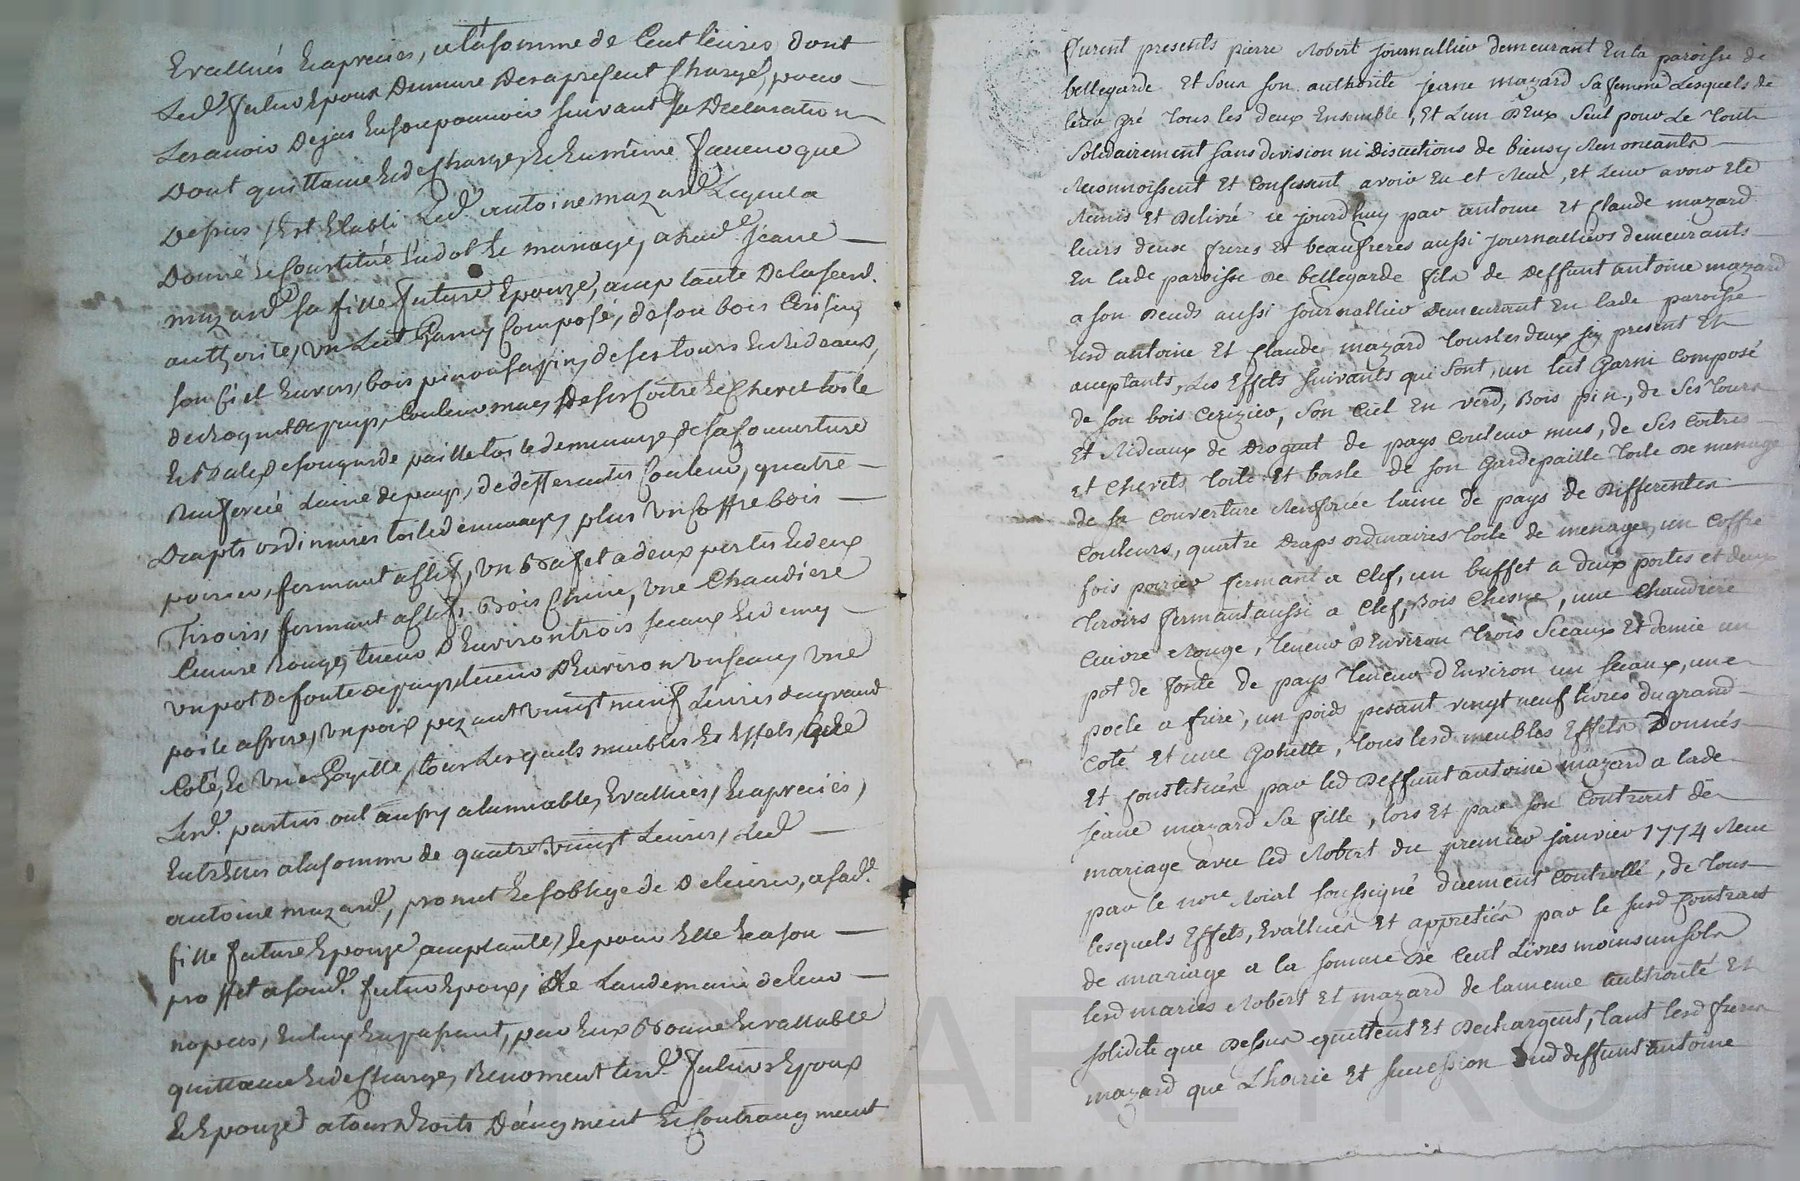 Evallués Et apreciés, a la somme de Cent Livres, dont
Led. futur Epoux Demeure Des apresent Chargé, pour
Les avoir Dejas En son pouvoir suivant sa Declaration
Dont quittance Et de Charge, Et En même faveur que
Dessus, Est Etabli Led. antoine mazard Lequel a
Donné Et Constitué En dot Et mariage, a lad. Jeane
mazard sa fille future Epouze, acceptante De la susd.
authorité, un Lit Garny Composé, de son bois Cerisier,
son Ciel En vers, bois pin ou sapin, de ses tours Et rideaux,
de droguet de pays, Couleur mus, De ses Coitre Et Chevet toile
Et Bale, De son garde paille toile de menage, de sa Couverture
Renforcée Laine de pays, de differantes Couleur, quatre
Draps ordinaires toile de menage, plus un Coffre bois
poirier, fermant a Clef, un Bufet a deux portes Et deux
Tiroirs, fermant a Clef, Bois Chene, une Chaudiere
Cuivre Rouge, teneur D'Environ trois seaux Et demy
un pot De fonte de pays, teneur D'Environ un seau, une
poile a frire, un poix pezant vingt neuf Livres du grand
Coté, Et une, tous Lesquels meubles Et Effets,
Lesd. parties ont aussy a lamiable, Evallués, Et apreciés,
Entr'Elles a la somme de quatre vingt Livres, Led.
antoine mazard, promet Et s'oblige de Delivrer, a sad.
fille future Epouze acceptante, Et pour Elle Et a son
proffit a sond. futur Epoux, Le Landemain de leur
nopces, En luy En passant, par Eux Bonne Et vallable
quittance Et de Charge, Renoncent Lesd. futurs Epoux
Et Epouze a tous droits D'augment Et Contraugment
furent presents pierre Robert journallier demeurant En la paroisse de
bellegarde Et sous son authorité jeane mazard sa femme Lesquels de
leur gré tous les deux Ensemble, Et L'un D'Eux seul pour Le tout
solidairement sans division ni Discutions de biens y Renonceants
Reconnoissent Et Confessent avoir Eu et Reçu, Et Leur avoir Eté
Remis Et Delivré ce jourd'huy par antoine Et Claude mazard
leurs deux freres Et beaufreres aussi journalliers demeurants
En lade paroisse De bellegarde fils de Deffunt antoine mazard
a son Decuds aussi journallier Demeurant En lade paroisse
lesd antoine Et Claude mazard tous les deux Icy present Et
acceptants, Les Effets suivants qui sont, un lit Garni Composé
de son bois Cerizier, son Ciel En verd, Bois pin, de ses tours
Et Rideaux de Droguet de pays Couleur mus, de ses Coitres
Et Chevets toile Et basle de son Gardepaille toile De menage
de sa Couverture Renforcée laine de pays de Differentes
Couleurs, quatre Draps ordinaires toile de menage, un Coffre
fois poirier fermant a Clef, un buffet a deux portes et deux
tiroirs fermant aussi a Clef, Bois Chesne, une Chaudiere
Cuivre Rouge, teneur D'Environ trois Seaux Et demie un
pot de fonte de pays teneur d'Environ un Seaux, une
poele a frire, un poids pesant vingt neuf livres du grand
Coté Et une, tous lesd meubles Effets Donnés
Et Constitués par led Deffunt antoine mazard a lade
jeane mazard sa fille, lors Et par son Contrait de
mariage avec led Robert du premier janvier 1774 Reçu
par le nore Roial soussigné duement Controllé, de tous
lesquels Effets, Evalliués Et appretiés par le susd Contrait
de mariage a la somme De Cent Livres moins un sols
lesd mariés Robert Et mazard de la meme authorité Et
solidité que Dessus quittent Et Dechargent, tant lesd freres
mazard que L'hoirie Et succession Dud deffunt antoine